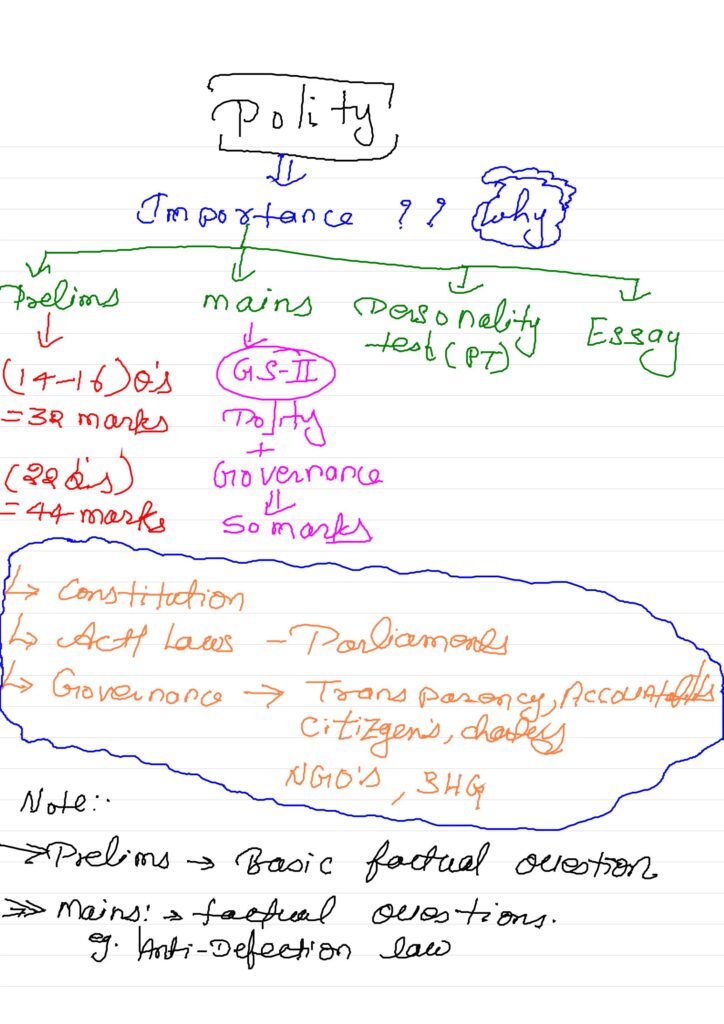 Polity
Importance ?? Why
Prelims mains Personality test (PT) Essay
(14-16) Q's
= 32 marks
(22 Q's)
= 44 marks
GS-II
Polity
+
Governance
50 marks
→ Constitution
→ Act Laws - Parliaments
→ Governance → Transparency, Accountability
Citizgen's, charters
NGO's, SHG
Note:-
→ Prelims → Basic factual question
⇒ Mains: → factual questions.
eg. Anti-Defection law